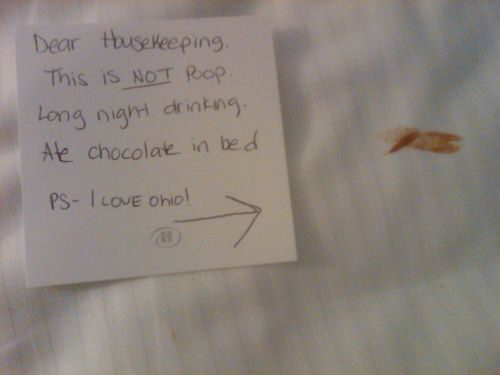 Dear Housekeeping.
This is NOT Poop.
Long night drinking.
Ate chocolate in bed
PS- I LOVE OHIO!
H